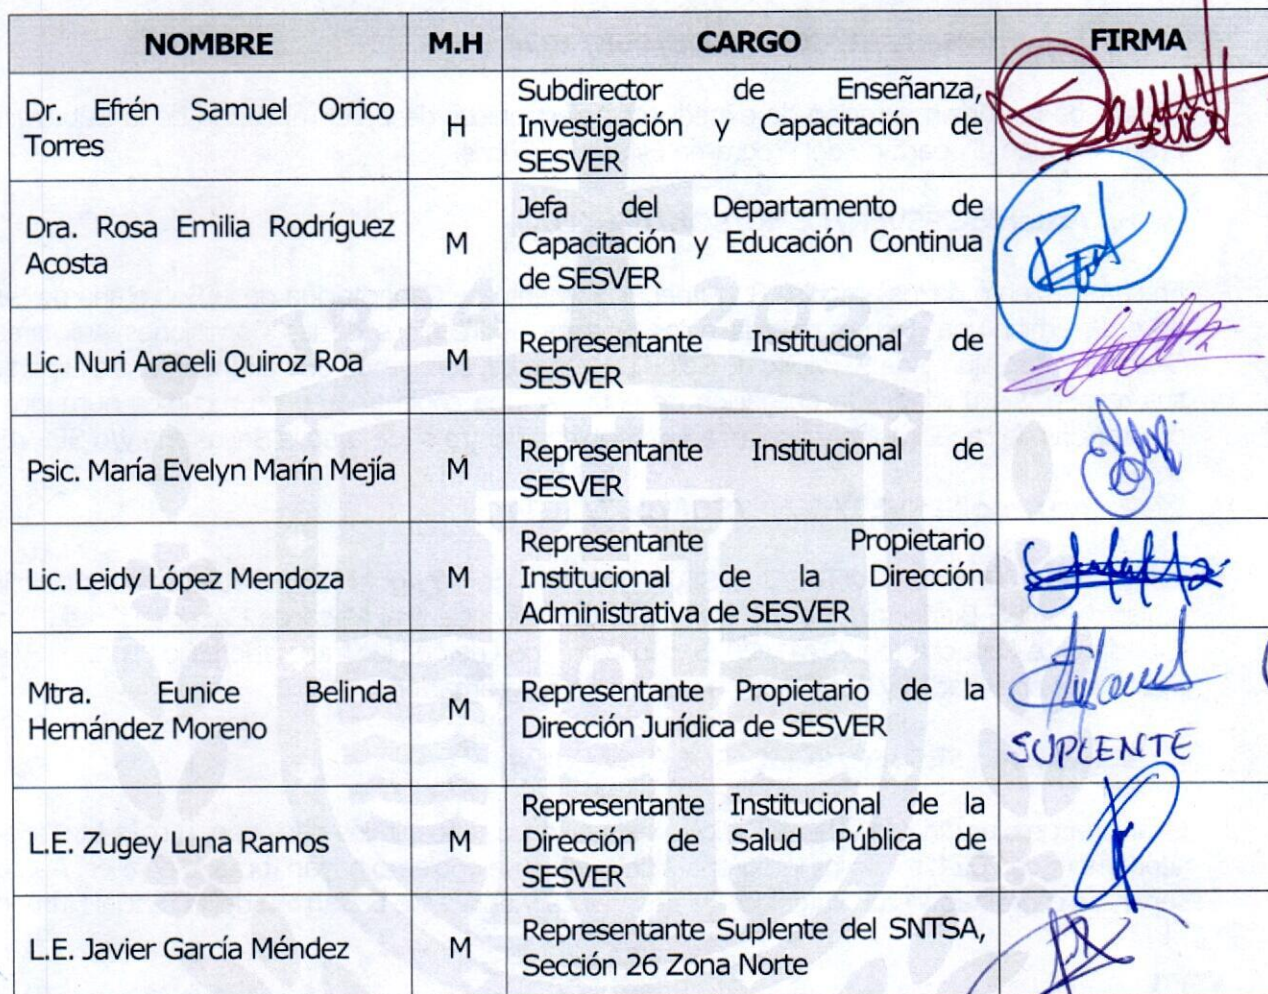 NOMBRE M.H CARGO FIRMA
Dr. Efrén Samuel Orrico
Torres
H
Subdirector de Enseñanza,
Investigación y Capacitación de
SESVER
Dra. Rosa Emilia Rodríguez
Acosta
M
Jefa del Departamento de
Capacitación y Educación Continua
de SESVER
Lic. Nuri Araceli Quiroz Roa
M
Representante Institucional de
SESVER
Psic. María Evelyn Marín Mejía
M
Representante Institucional de
SESVER
Lic. Leidy López Mendoza
M
Representante Propietario
Institucional de la Dirección
Administrativa de SESVER
Mtra. Eunice Belinda
Hernández Moreno
M
Representante Propietario de la
Dirección Jurídica de SESVER
SUPLENTE
L.E. Zugey Luna Ramos
M
Representante Institucional de la
Dirección de Salud Pública de
SESVER
L.E. Javier García Méndez
M
Representante Suplente del SNTSA,
Sección 26 Zona Norte
1824 2024